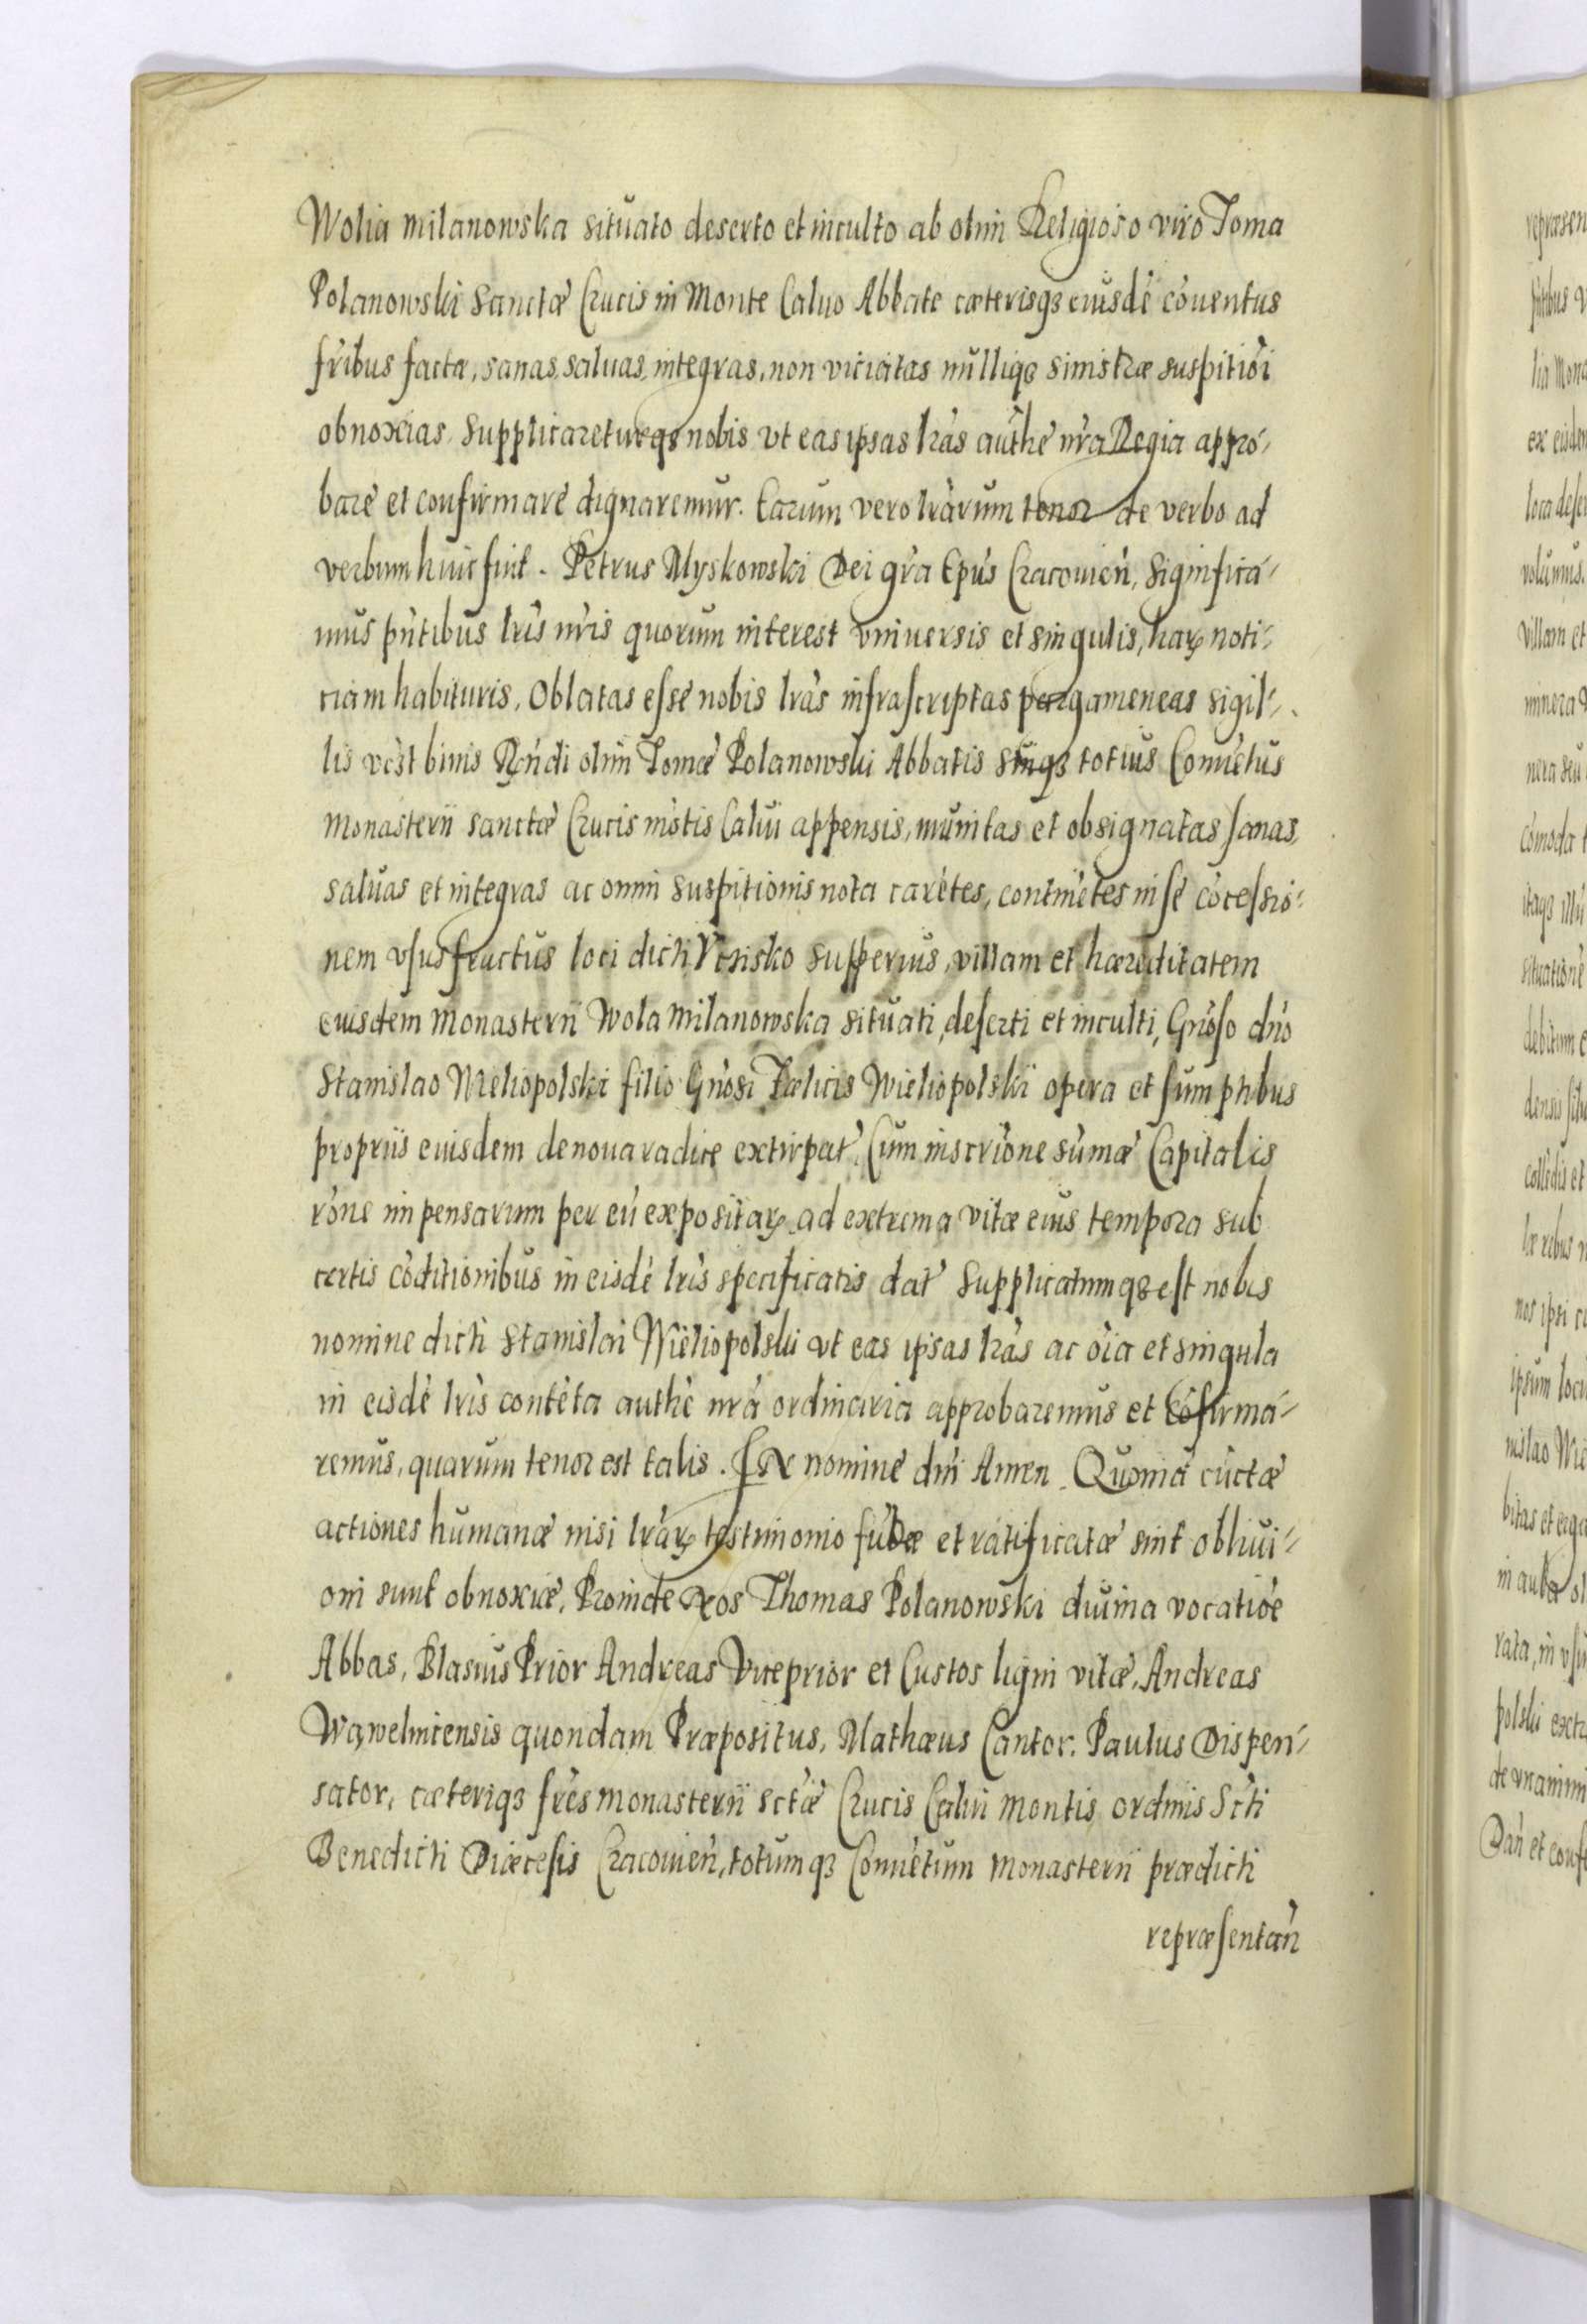 Wolia Milanowska situato deserto et inculto ab olim Religioso viro Toma
Polanowski Sanctæ Crucis in Monte Caluo Abbate cæterisqꝫ eiusdē cōuentus
fribus facta, sanas, saluas, integras, non viciatas nulliqꝫ sinistræ suspitiōi
obnoxias, Supplicareturqꝫ nobis vt eas ipsas lr̃as authē nr̃a Regia appro-
bare et confirmare dignaremur. Earum vero lr̃arum tenor de verbo ad
verbum huic fuit. Petrus Myskowski Dei gr̃a Ep̃us Cracouieñ, Significa-
mus pñtibus lr̃is nr̃is quorum interest vniuersis et singulis, harꝝ noti-
tiam habituris, Oblatas esse nobis lr̃as infrascriptas pergameneas sigil-
lis binis Rñdi olim Tomæ Polanowski Abbatis totius Conuētus
Monasterii sanctæ Crucis mōtis Calui appensis, munitas et obsignatas sanas,
saluas et integras ac omni suspitionis nota carētes, continētes in se cōcessio-
nem vsusfructus loci dicti superius, villam et hæreditatem
eiusdem Monasterii Wola Milanowska situati, deserti et inculti, Gñoso dño
Stanislao Wieliopolski filio Gñosi Fœlicis Wieliopolski opera et sumptibus
propriis eiusdem de noua radice extirpat̃, Cum inscr̃ione sūmæ Capitalis
rōne impensarum per eū expositarꝝ ad extrema vitæ eius tempora sub
certis cōditionibus in eisdē lr̃is specificatis dat̃ Supplicatumqꝫ est nobis
nomine dicti Stanislai Wieliopolski vt eas ipsas lr̃as ac oīa et singula
in eisdē lr̃is contēta authē nr̃a ordinaria approbaremus et cōfirma-
remus, quarum tenor est talis. IN nomine dñi Amen. Quoniā cūctæ
actiones humanæ nisi lr̃arꝝ testimonio et ratificatæ sint obliui-
oni sunt obnoxiæ, Proinde Nos Thomas Polanowski diuina vocatiōe
Abbas, Blasius Prior Andreas Viceprior et Custos ligni vitæ, Andreas
Wąwelnicensis quondam Præpositus, Mathæus Cantor, Paulus Dispen-
sator, cæteriqꝫ frēs Monasterii sctæ Crucis Calui Montis ordinis Scti
Benedicti Diœcesis Cracouieñ, totumqꝫ Conuētum Monasterii prædicti
repræsentañ